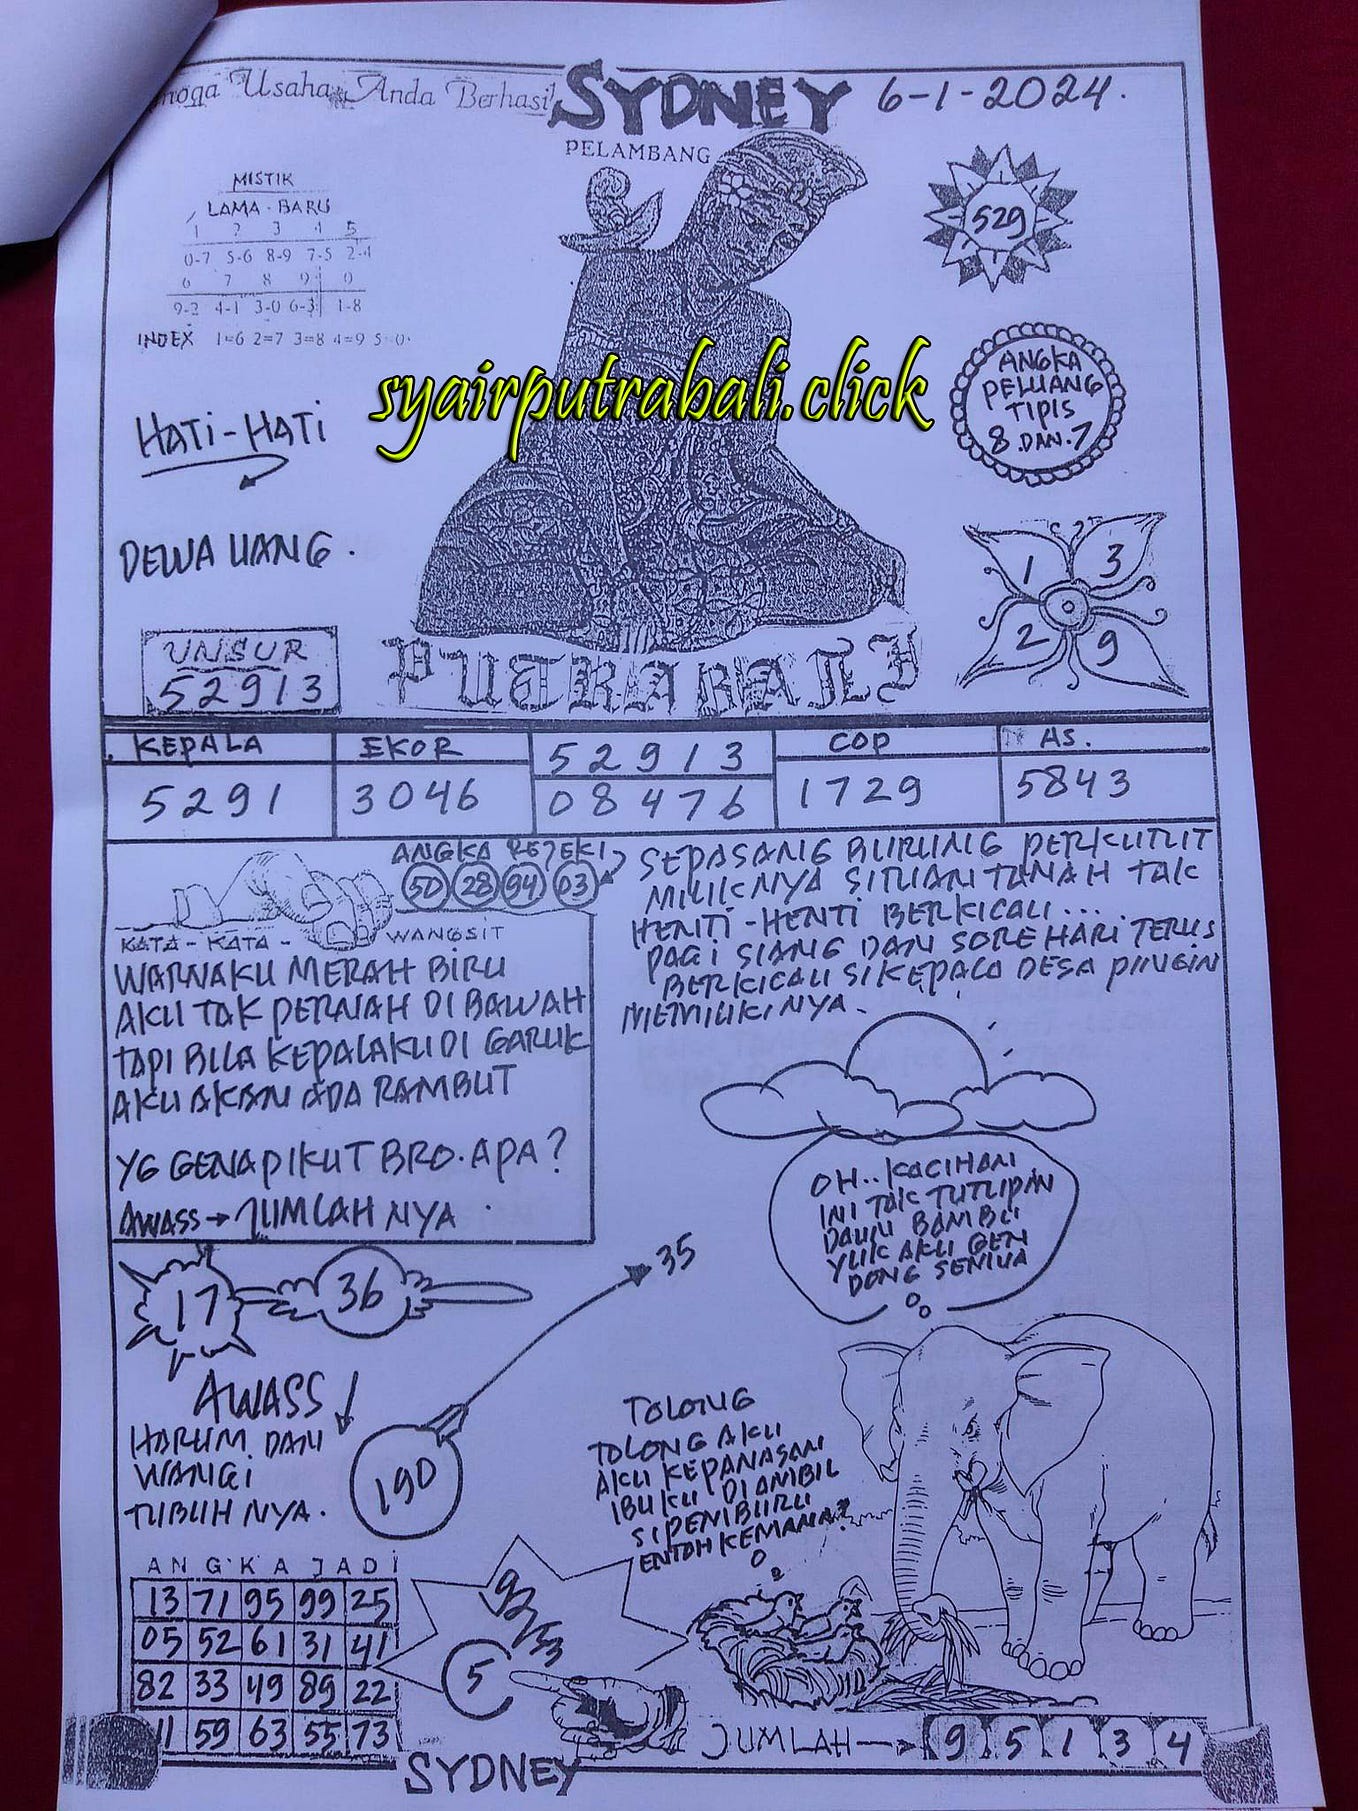 Usaha Anda Berhasil
SYDNEY 6-1-2024.
PELAMBANG
MISTIK
LAMA - BARU
1 2 3 4 5
0-7 5-6 8-9 7-5 2-4
6 7 8 9 0
9-2 4-1 3-0 6-3 1-8
INDEX 1=6 2=7 3=8 4=9 5=0
529
ANGKA
PELUANG
TIPIS
8 DAN 7
syairputrabali.click
HATI-HATI
DEWA UANG.
1 3
2 9
UNSUR
52913
PUTRABALI
KEPALA EKOR 52913 COP AS.
5291 3046 08476 1729 5843
ANGKA REJEKI
50 28 94 03
KATA - KATA - WANGSIT
WARNAKU MERAH BIRU
AKU TAK PERNAH DI BAWAH
TAPI BILA KEPALAKU DI GARUK
AKU AKAN ADA RAMBUT
YG GENAP IKUT BRO. APA?
AWASS → JUMLAH NYA
SEPASANG BURUNG PERKUTUT
MILIKNYA SITUAN TANAH TAK
HENTI-HENTI BERKICAU....
PAGI SIANG DAN SORE HARI TERUS
BERKICAU SIKEPALA DESA PINGIN
MEMILIKINYA.
OH.. KACIHAN
INI TAK TUTUPIN
DAUN BAMBU
YUK AKU GEN
DONG SEMUA
17 36
35
190
AWASS
HARUM DAN
WANGI
TUBUH NYA.
TOLONG
TOLONG AKU
AKU KEPANASAN
IBUKU DI AMBIL
SI PEMBURU
ENTAH KEMANA?
ANGKA JADI
13 71 95 99 25
05 52 61 31 41
82 33 49 89 22
11 59 63 55 73
92/53
5
JUMLAH → 9 5 1 3 4
SYDNEY